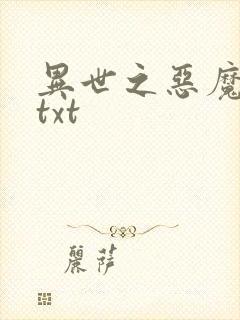 異世之惡魔
txt
麗薩